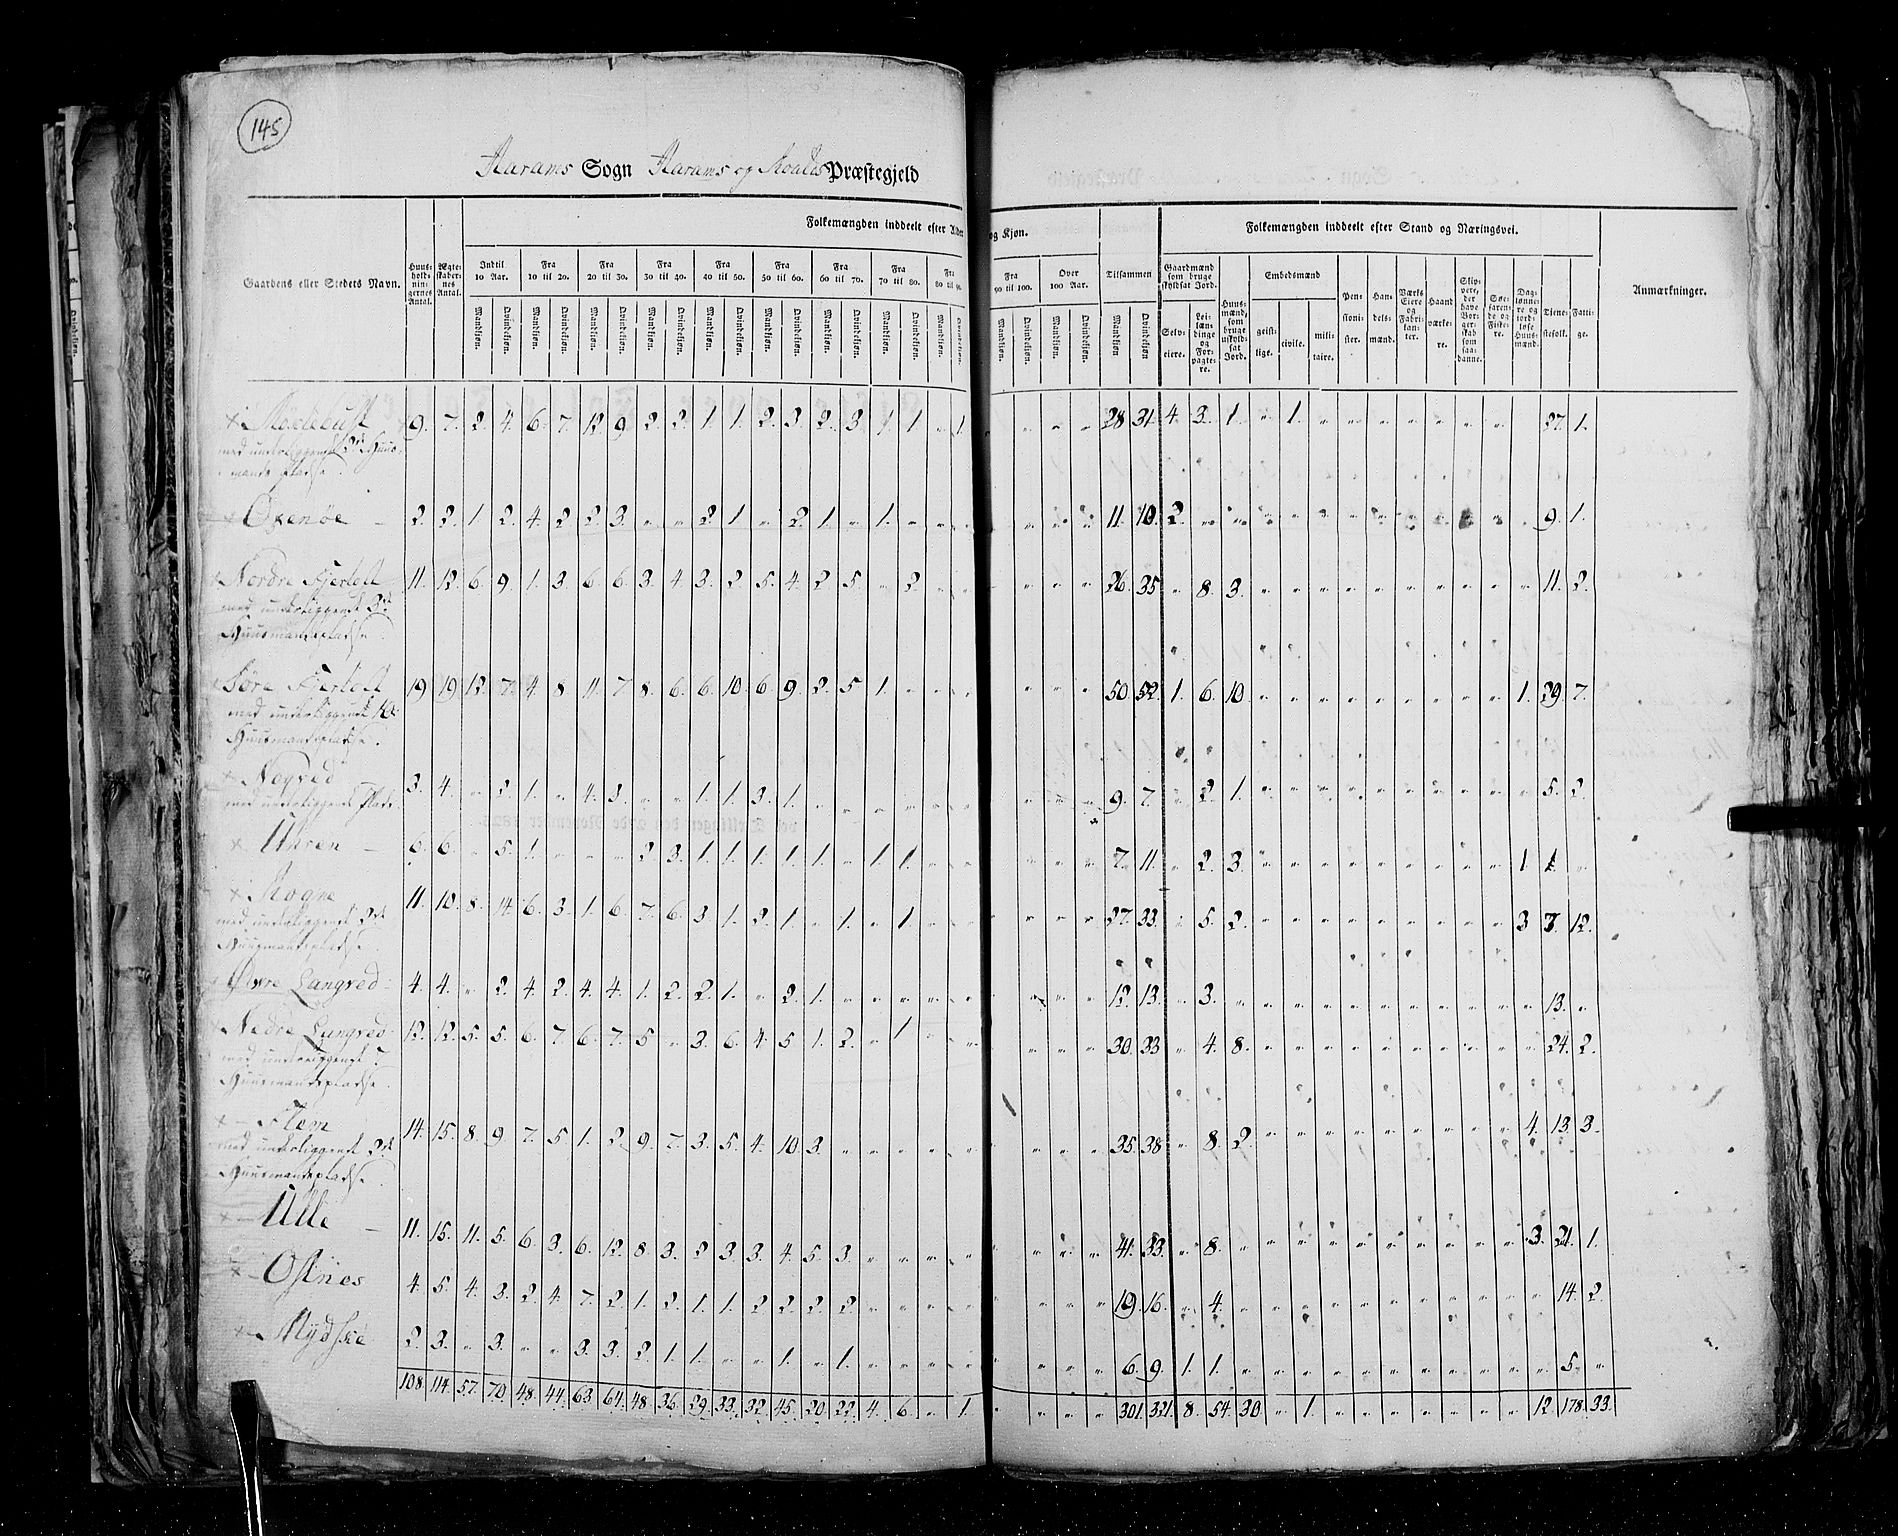 145
Harams Sogn Harams og Roalds Præstegjeld
Folkemængden inddeelt efter Alder og Kjøn.
Folkemængden inddeelt efter Stand og Næringsvei.
Gaardens eller Stedets Navn.
Huus-holdningernes Antal.
Ægteskabernes Antal.
Indtil 10 Aar.
Fra 10 til 20.
Fra 20 til 30.
Fra 30 til 40.
Fra 40 til 50.
Fra 50 til 60.
Fra 60 til 70.
Fra 70 til 80.
Fra 80 til 90.
Fra 90 til 100.
Over 100 Aar.
Tilsammen
Mandkjøn. Qvindekjøn.
Gaardmænd som bruge skyldsat Jord.
Selveiere.
Leilændinge og Forpagtere.
Huusmænd, som bruge uskyldsat Jord.
Embedsmænd
geistlige. civile. militaire.
Pensionister.
Handelsmænd.
Værks Eiere og Fabrikanter.
Haandværkere.
Skippere, der have Borgerskab som saadanne.
Søefarende og Fiskere.
Dagslønnere og jordløse Huusmænd.
Tjenestefolk.
Fattige.
Anmærkninger.
9. 7. 2. 4. 6. 7. 12. 9. 2. 2. 1. 1. 2. 3. 2. 3. 1. 1. „ 1. „ „ 28 31. 4. 3. 1. „ 1. „ „ „ „ „ „ „ „ 27. 1.
med underliggende Huusmands pladse.
Oxenøe 2. 2. 1. 2. 4. 2. 2. 3. „ „ 2. 1. „ 2. 1. „ 1. „ „ „ „ „ „ 11. 10. 2. „ „ „ „ „ „ „ „ „ „ „ „ 9. 1.
Nordre Fjertoft 11. 12. 6. 9. 1. 3. 6. 6. 3. 4. 3. 2. 5. 4. 2. 5. „ 2. „ „ „ „ „ 26. 35. „ 8. 3. „ „ „ „ „ „ „ „ „ „ 11. 2.
med underliggende 3de
Huusmandspladse.
Søre Fjertoft 19 19. 12. 7. 4. 8. 11. 7. 8. 6. 6. 10. 6. 9. 2. 5. 1. „ „ „ „ „ „ 50. 52. 1. 6. 10. „ „ „ „ „ „ „ „ „ 1. 29. 7.
med underliggende 10
Huusmandspladse.
Nogred 3. 4. „ 2. 1. „ 4. 3. „ „ 1. 1. 3. 1. „ „ „ „ „ „ „ „ „ 9. 7. „ 2. 1. „ „ „ „ „ „ „ „ „ „ 5. 2.
med underliggende Plads.
Uhren 6. 6. „ 5. 1. „ „ „ 2. 3. 1. 1. 1. 1. 1. „ 1. 1. „ „ „ „ „ 7. 11. „ 2. 3. „ „ „ „ „ „ „ „ „ 1 1. „
Rogne 11. 10. 8. 14. 6. 3. 1. 6. 7. 6. 3. 1. 2. 1. „ 1. „ 1. „ „ „ „ „ 27. 33. „ 5. 2. „ „ „ „ „ „ „ „ „ 3 7. 12.
med underliggende 2de
Huusmandspladse
Øvre Langred 4. 4. „ 2. 4. 2. 4. 4. 1. 2. 2. 1. „ 2. 1. „ „ „ „ „ „ „ „ 12. 13. „ 3. „ „ „ „ „ „ „ „ „ „ „ 13. „
Nedre Langred 12. 12. 5. 5. 6. 7. 6. 7. 5 „ 3. 6. 4. 5. 1. 2. „ 1 „ „ „ „ „ 30. 33 „ 4. 8. „ „ „ „ „ „ „ „ „ „ 24. 2.
med underliggende 7
Huusmandspladse.
Flem 14. 15. 8. 9. 7. 5. 1. 2. 9. 7. 3. 5. 4. 10 3. „ „ „ „ „ „ „ „ 35. 38 „ 8. 2. „ „ „ „ „ „ „ „ „ 4. 13. 3.
med underliggende 2de
Huusmandspladse.
Ulle 11. 15. 11. 5. 6. 3. 6. 12. 8. 3. 2. 3. 3. 4. 5. 3. „ „ „ „ „ „ „ 41. 33. „ 8. „ „ „ „ „ „ „ „ „ „ 3. 21. 1.
Ostnes 4. 5. 4. 3. 2. 4. 7. 2. 1. 2. 1. 1. 2. 2. 2. 2. „ „ „ „ „ „ „ 19. 16. „ 4. „ „ „ „ „ „ „ „ „ „ „ 14. 2.
Mydské 2. 3. „ 3. „ „ 3. 3. 2. 1. 1. „ „ 1. „ 1. „ „ „ „ „ „ „ 6. 9. 1. 1. „ „ „ „ „ „ „ „ „ „ „ 5. „
108. 114. 57. 70. 48. 44. 63. 64. 48. 36. 29. 33. 32. 45. 20. 22. 4. 6. „ 1. „ „ „ „ 301. 321. 8. 54. 30 „ 1. „ „ „ „ „ „ „ 12. 178. 33.